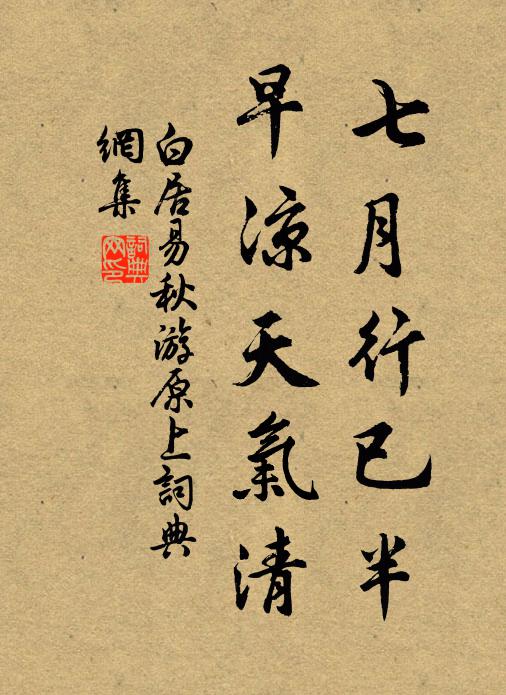 七月行已半
早凉天氣清
白居易秋游原上詞典
網集
詞典
网印